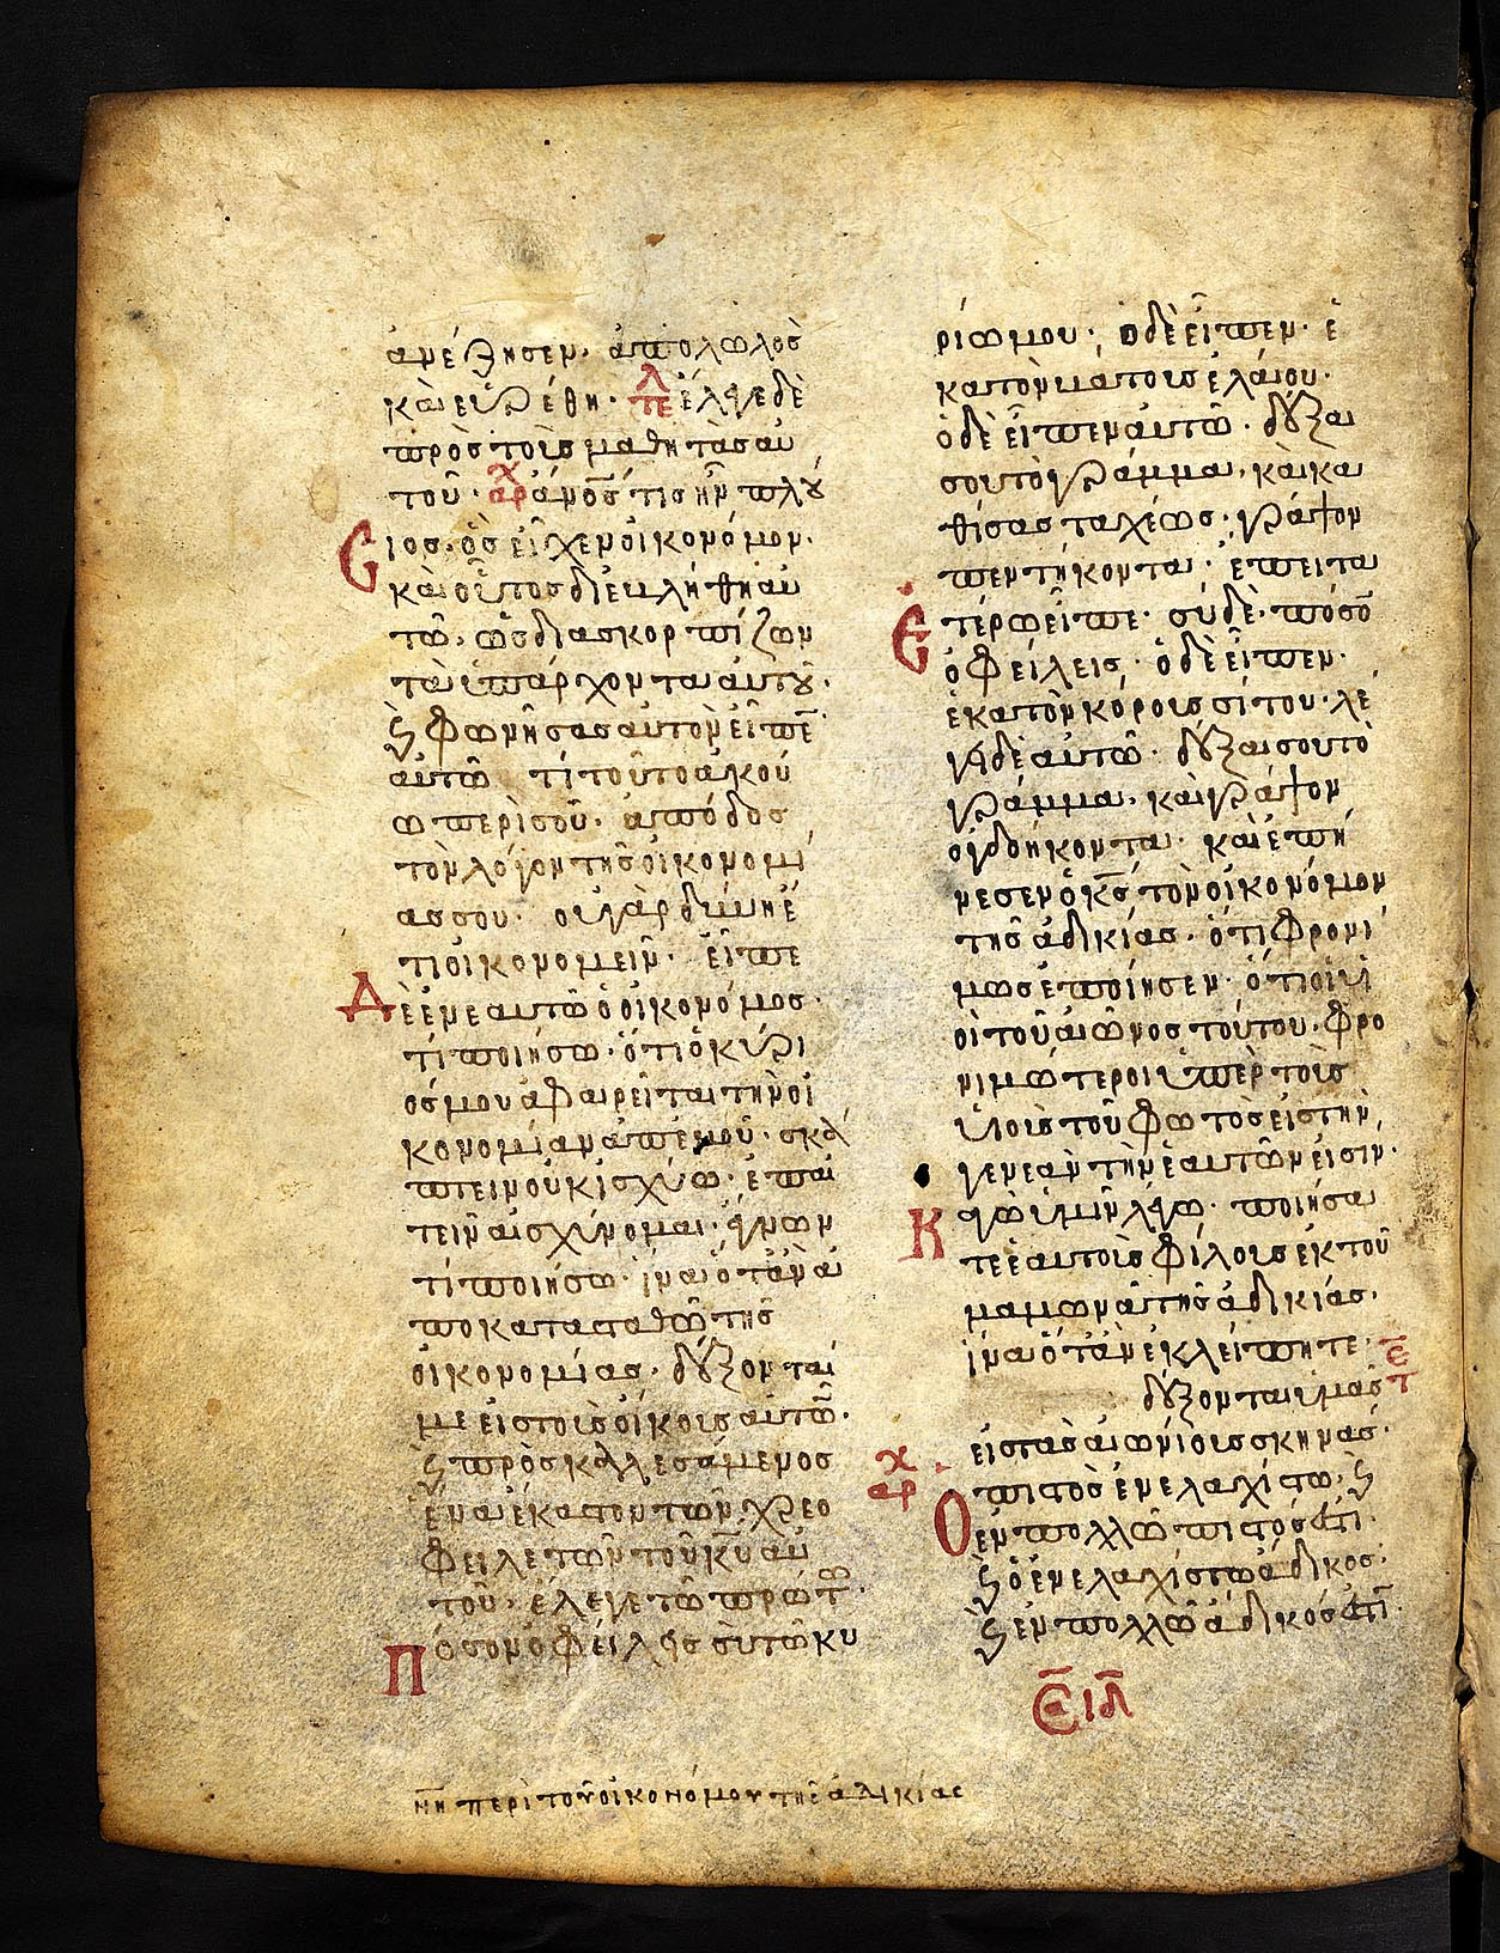 ἀνέζησεν· ἀπολωλὸς
καὶ εὑρέθη· τε λ ἔλεγε δὲ
πρὸς τοὺς μαθητὰς αὐ
τοῦ· αρχ ἄνο̅ς̅ τις ἦν πλού
Ϲ ιος· ὃς εἶχεν οἰκονόμον·
καὶ οὗτος διεβλήθη αὐ
τῷ· ὡς διασκορπίζων
τὰ ὑπάρχοντα αὐτοῦ·
ϗ φωνήσας αὐτὸν εἶπε̅·
αὐτῷ τί τοῦτο ἀκού
ω περὶ σοῦ· ἀπόδος
τὸν λόγον τῆς οἰκονομί
ας σου· οὐ γὰρ δύνη ἔ
τι οἰκονομεῖν· εἶπε
Δ ὲ ἐν ἑαυτῷ ὁ οἰκονόμος·
τί ποιήσω· ὅτι ὁ κύρι
ός μου ἀφαιρεῖται τὴν οἰ
κονομίαν ἀπ' ἐμοῦ· σκά
πτειν οὐκ ἰσχύω· ἐπαι
τεῖν αἰσχύνομαι· ἔγνων
τί ποιήσω· ἵνα ὅταν ἀ
ποκατασταθῶ τῆς
οἰκονομίας· δέξονταί
με εἰς τοὺς οἴκους αὐτῶν·
ϗ προσκαλλεσάμενος
ἕνα ἕκαστον τῶν χρεο
φειλετῶν τοῦ κ̅υ̅ αὐ
τοῦ· ἔλεγε τῷ πρώτω·
Π όσον ὀφείλεις σὺ τῷ κυ
ρίῳ μου· ὁ δὲ εἶπεν· ἑ
κατὸν βάτους ἐλαίου·
ὁ δὲ εἶπεν αὐτῷ· δέξαι
σου τὸ γράμμα· καὶ κα
θίσας ταχέως· γράψον
πεντήκοντα· ἔπειτα
Ε τέρω εἶπε· σὺ δὲ· πόσο̅
ὀφείλεις· ὁ δὲ εἶπεν·
ἑκατὸν κόρους σίτου· λέ
γει δὲ αὐτῷ· δέξαι σου τὸ
γράμμα· καὶ γράψον
ὀγδοήκοντα· καὶ ἐπή
νεσεν ὁ κ̅ς̅ τὸν οἰκονόμον
τῆς ἀδικίας· ὅτι φρονί
μως ἐποίησεν· ὅτι οἱ υἱ
οὶ τοῦ αἰῶνος τούτου· φρο
νιμώτεροι ὑπὲρ τοὺς
υἱοὺς τοῦ φωτὸς εἰς τὴν
γενεὰν τὴν ἑαυτῶν εἰσιν·
Κ αγὼ ὑμῖν λέγω· ποιήσα
τε ἑαυτοῖς φίλους ἐκ τοῦ
μαμωνᾶ τῆς ἀδικίας·
ἵνα ὅταν ἐκλείπητε· ε̅
δέξονται ὑμᾶς τ
εἰς τὰς αἰωνίους σκηνάς·
αρχ Ὁ πιστὸς ἐν ἐλαχίστω· ϗ
ἐν πολλῷ πιστός ἐστι·
ϗ ὁ ἐν ἐλαχίστω ἄδικος·
ϗ ἐν πολλῷ ἄδικός ἐστι·
ε̅ ιδ̅
μη περὶ τοῦ οἰκονόμου τῆς ἀδικίας